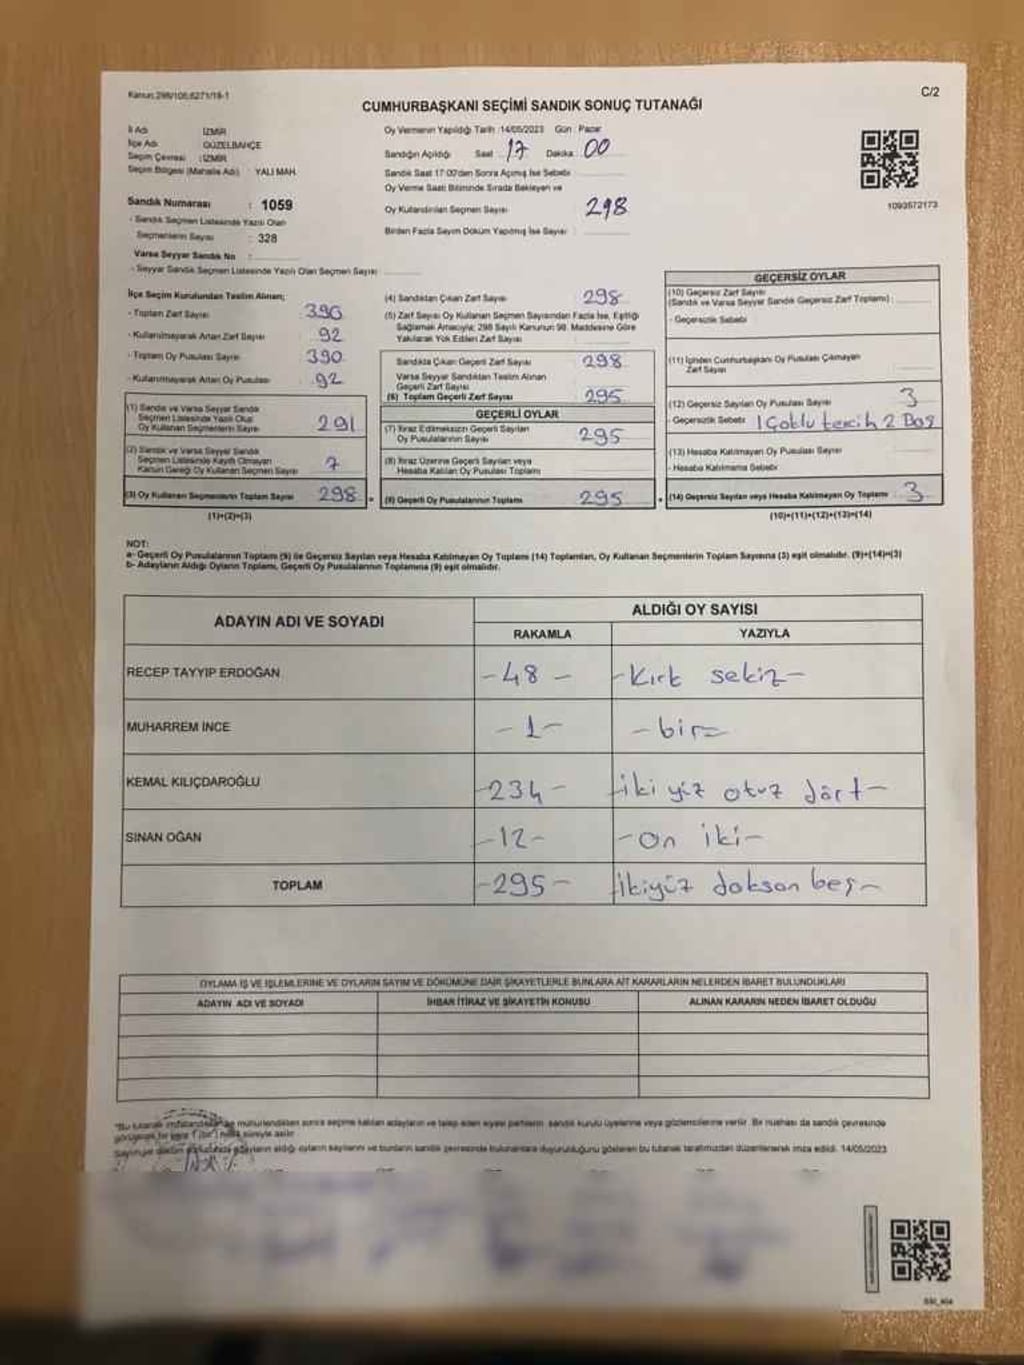 Kanun:298/105;6271/18-1
C/2
CUMHURBAŞKANI SEÇİMİ SANDIK SONUÇ TUTANAĞI
İl Adı : İZMİR
İlçe Adı : GÜZELBAHÇE
Seçim Çevresi : İZMİR
Seçim Bölgesi (Mahalle Adı) : YALI MAH.
Sandık Numarası : 1059
- Sandık Seçmen Listesinde Yazılı Olan
Seçmenlerin Sayısı : 328
Varsa Seyyar Sandık No :
- Seyyar Sandık Seçmen Listesinde Yazılı Olan Seçmen Sayısı
Oy Vermenin Yapıldığı Tarih :14/05/2023 Gün : Pazar
Sandığın Açıldığı Saat : 17 Dakika : 00
Sandık Saat 17:00'den Sonra Açılmış İse Sebebi
Oy Verme Saati Bitiminde Sırada Bekleyen ve
Oy Kullandırılan Seçmen Sayısı 298
Birden Fazla Sayım Döküm Yapılmış İse Sayısı
1093572173
İlçe Seçim Kurulundan Teslim Alınan;
- Toplam Zarf Sayısı : 390
- Kullanılmayarak Artan Zarf Sayısı : 92
- Toplam Oy Pusulası Sayısı : 390
- Kullanılmayarak Artan Oy Pusulası : 92
(1) Sandık ve Varsa Seyyar Sandık
Seçmen Listesinde Yazılı Olup
Oy Kullanan Seçmenlerin Sayısı 291
(2) Sandık ve Varsa Seyyar Sandık
Seçmen Listesinde Kayıtlı Olmayan
Kanun Gereği Oy Kullanan Seçmen Sayısı 7
(3) Oy Kullanan Seçmenlerin Toplam Sayısı 298
(1)+(2)=(3)
(4) Sandıktan Çıkan Zarf Sayısı 298
(5) Zarf Sayısı Oy Kullanan Seçmen Sayısından Fazla İse, Eşitliği
Sağlamak Amacıyla; 298 Sayılı Kanunun 98. Maddesine Göre
Yakılarak Yok Edilen Zarf Sayısı
Sandıkta Çıkan Geçerli Zarf Sayısı 298
Varsa Seyyar Sandıktan Teslim Alınan
Geçerli Zarf Sayısı
(6) Toplam Geçerli Zarf Sayısı 295
GEÇERLİ OYLAR
(7) İtiraz Edilmeksizin Geçerli Sayılan
Oy Pusulalarının Sayısı 295
(8) İtiraz Üzerine Geçerli Sayılan veya
Hesaba Katılan Oy Pusulası Toplamı
(9) Geçerli Oy Pusulalarının Toplamı 295
GEÇERSİZ OYLAR
(10) Geçersiz Zarf Sayısı
(Sandık ve Varsa Seyyar Sandık Geçersiz Zarf Toplamı) :
- Geçersizlik Sebebi
(11) İçinden Cumhurbaşkanı Oy Pusulası Çıkmayan
Zarf Sayısı
(12) Geçersiz Sayılan Oy Pusulası Sayısı 3
- Geçersizlik Sebebi 1 Çoklu tercih 2 Boş
(13) Hesaba Katılmayan Oy Pusulası Sayısı
- Hesaba Katılmama Sebebi
(14) Geçersiz Sayılan veya Hesaba Katılmayan Oy Toplamı 3
(10)+(11)+(12)+(13)=(14)
NOT:
a- Geçerli Oy Pusulalarının Toplamı (9) ile Geçersiz Sayılan veya Hesaba Katılmayan Oy Toplamı (14) Toplamları, Oy Kullanan Seçmenlerin Toplam Sayısına (3) eşit olmalıdır. (9)+(14)=(3)
b- Adayların Aldığı Oyların Toplamı, Geçerli Oy Pusulalarının Toplamına (9) eşit olmalıdır.
ADAYIN ADI VE SOYADI
ALDIĞI OY SAYISI
RAKAMLA YAZIYLA
RECEP TAYYİP ERDOĞAN -48- -Kırk sekiz-
MUHARREM İNCE -1- -bir-
KEMAL KILIÇDAROĞLU -234- -iki yüz otuz dört-
SİNAN OĞAN -12- -on iki-
TOPLAM -295- ikiyüz doksan beş-
OYLAMA İŞ VE İŞLEMLERİNE VE OYLARIN SAYIM VE DÖKÜMÜNE DAİR ŞİKAYETLERLE BUNLARA AİT KARARLARIN NELERDEN İBARET BULUNDUKLARI
ADAYIN ADI VE SOYADI İHBAR İTİRAZ VE ŞİKAYETİN KONUSU ALINAN KARARIN NEDEN İBARET OLDUĞU
"Bu tutanak mühürlendikten sonra seçime katılan adayların ve talep eden siyasi partilerin sandık kurulu üyelerine veya gözlemcilerine verilir. Bir nüshası da sandık çevresinde
süreyle asılır.
adayların aldığı oyların sayılarını ve bunların sandık çevresinde bulunanlara duyurulduğunu gösteren bu tutanak tarafımızdan düzenlenerek imza edildi. 14/05/2023